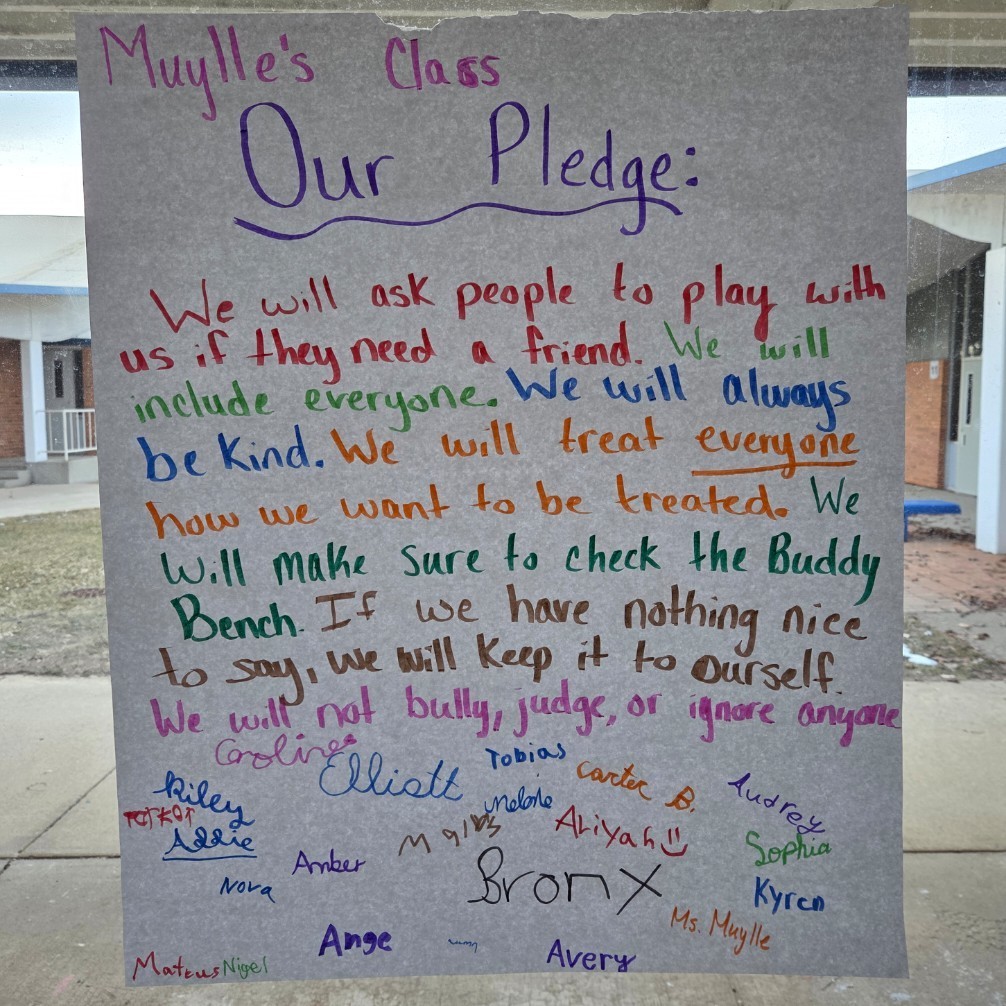 Muylle's Class
Our Pledge:
We will ask people to play with
us if they need a friend. We will
include everyone. We will always
be Kind. We will treat everyone
how we want to be treated. We
Will make sure to check the Buddy
Bench. If we have nothing nice
to say, we will keep it to ourself.
We will not bully, judge, or ignore anyone
Caroline
Elliott
Tobias
Carter B.
Audrey
Riley
Addie
Aliyah
Sophia
Amber
Nova
Bronx
Kyren
Ms. Muylle
Ange
Avery
Mateus
Nigel